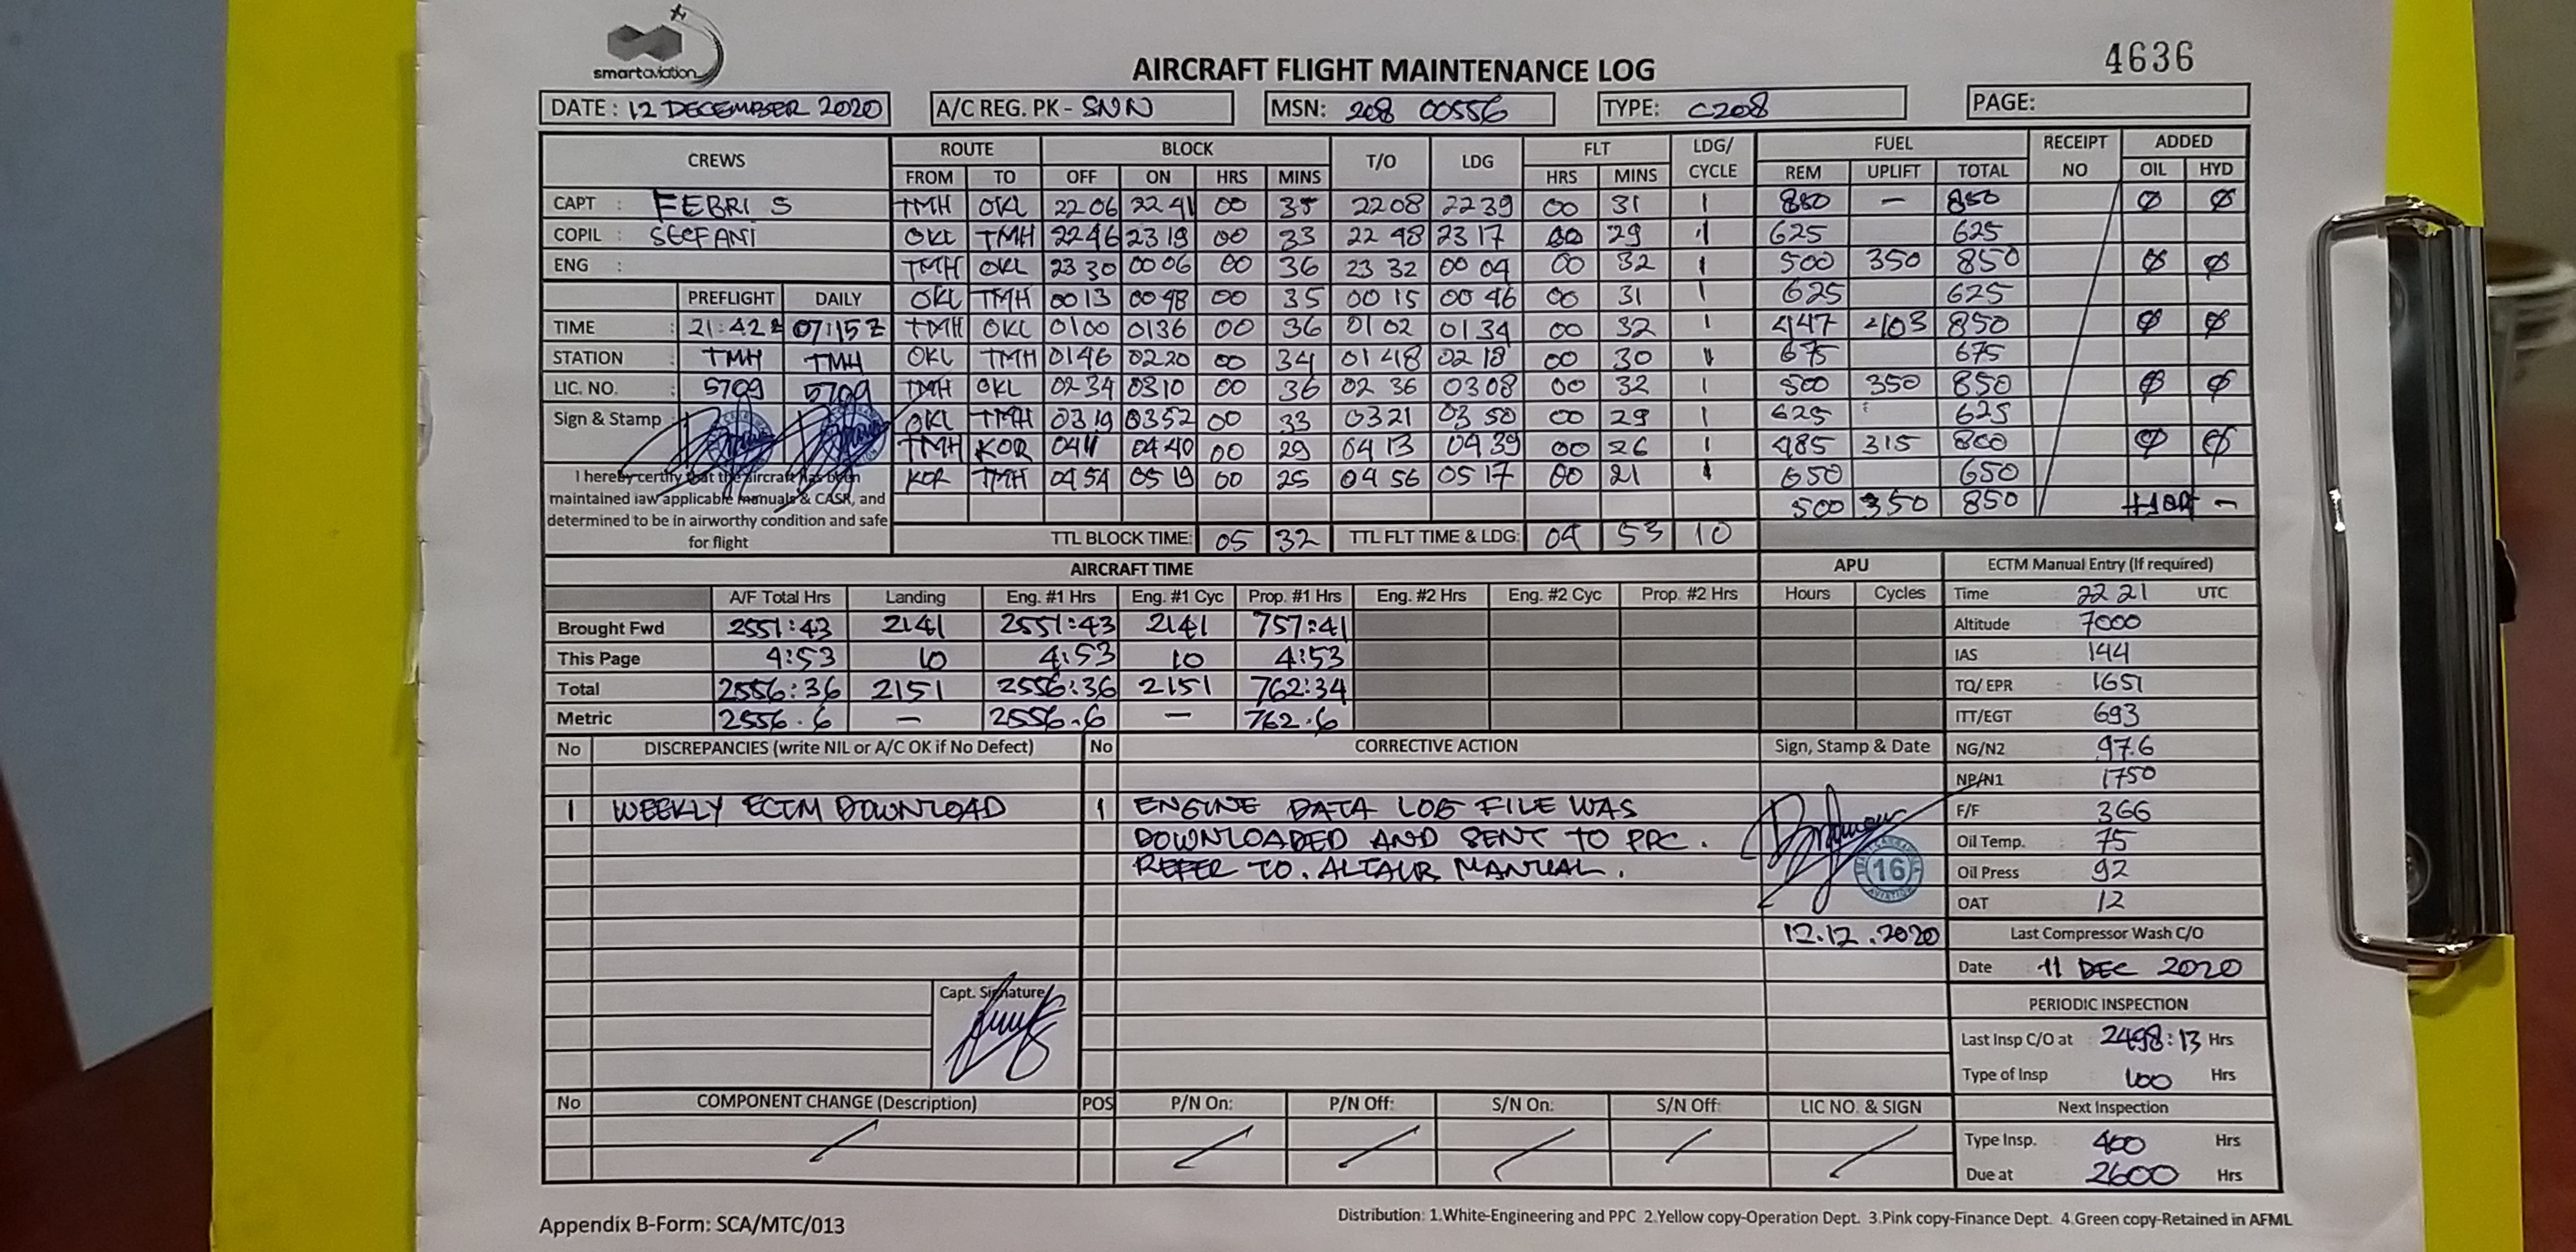 smartaviation
AIRCRAFT FLIGHT MAINTENANCE LOG
4636
DATE : 12 DECEMBER 2020 A/C REG. PK - SNN MSN: 208 00556 TYPE: C208 PAGE:
CREWS ROUTE BLOCK T/O LDG FLT LDG/ CYCLE FUEL RECEIPT NO ADDED
FROM TO OFF ON HRS MINS HRS MINS REM UPLIFT TOTAL OIL HYD
CAPT : FEBRI S TMH OKL 22 06 22 41 00 35 22 08 22 39 00 31 1 850 – 850 Ø Ø
COPIL : STEFANI OKL TMH 22 46 23 19 00 33 22 48 23 17 00 29 1 625 625
ENG : TMH OKL 23 30 00 06 00 36 23 32 00 04 00 32 1 500 350 850 Ø Ø
PREFLIGHT DAILY OKL TMH 00 13 00 48 00 35 00 15 00 46 00 31 1 625 625
TIME : 21:42 Z 07:15 Z TMH OKL 01 00 01 36 00 36 01 02 01 34 00 32 1 447 403 850 Ø Ø
STATION : TMH TMH OKL TMH 01 46 02 20 00 34 01 48 02 18 00 30 1 675 675
LIC. NO. : 5709 5709 TMH OKL 02 34 03 10 00 36 02 36 03 08 00 32 1 500 350 850 Ø Ø
Sign & Stamp : OKL TMH 03 19 03 52 00 33 03 21 03 50 00 29 1 625 625
TMH KOR 04 11 04 40 00 29 04 13 04 39 00 26 1 485 315 800 Ø Ø
KOR TMH 04 54 05 19 00 25 04 56 05 17 00 21 1 650 650
500 350 850 –
I hereby certify that the aircraft has been
maintained iaw applicable manuals & CASR, and
determined to be in airworthy condition and safe
for flight
TTL BLOCK TIME: 05 32 TTL FLT TIME & LDG: 04 53 10
AIRCRAFT TIME APU ECTM Manual Entry (If required)
A/F Total Hrs Landing Eng. #1 Hrs Eng. #1 Cyc Prop. #1 Hrs Eng. #2 Hrs Eng. #2 Cyc Prop. #2 Hrs Hours Cycles Time : 22 21 UTC
Brought Fwd 2551:43 2141 2551:43 2141 757:41 Altitude : 7000
This Page 4:53 10 4:53 10 4:53 IAS : 144
Total 2556:36 2151 2556:36 2151 762:34 TQ/ EPR : 1651
Metric 2556.6 – 2556.6 – 762.6 ITT/EGT : 693
No DISCREPANCIES (write NIL or A/C OK if No Defect) No CORRECTIVE ACTION Sign, Stamp & Date NG/N2 : 97.6
NP/N1 1750
1 WEEKLY ECTM DOWNLOAD 1 ENGINE DATA LOG FILE WAS F/F : 366
DOWNLOADED AND SENT TO PPC. Oil Temp. : 75
REFER TO. ALTAIR MANUAL. 16 Oil Press : 92
OAT : 12
12.12.2020 Last Compressor Wash C/O
Date 11 DEC 2020
Capt. Signature
PERIODIC INSPECTION
Last Insp C/O at : 2498:13 Hrs
Type of Insp : 100 Hrs
No COMPONENT CHANGE (Description) POS P/N On: P/N Off: S/N On: S/N Off: LIC NO. & SIGN Next Inspection
Type Insp. : 400 Hrs
Due at : 2600 Hrs
Appendix B-Form: SCA/MTC/013
Distribution: 1.White-Engineering and PPC 2.Yellow copy-Operation Dept. 3.Pink copy-Finance Dept. 4.Green copy-Retained in AFML